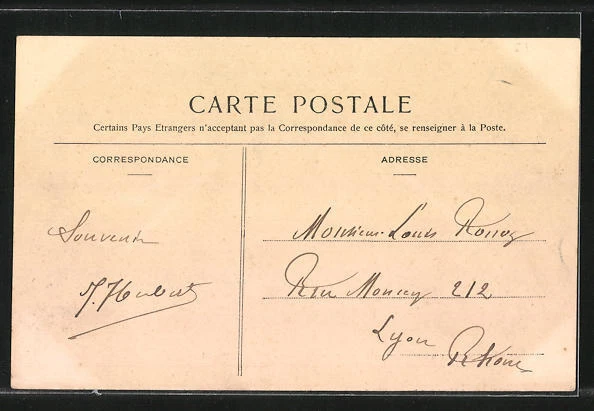 CARTE POSTALE
Certains Pays Etrangers n'acceptant pas la Correspondance de ce côté, se renseigner à la Poste.
CORRESPONDANCE
Souvenir
J. Hubert
ADRESSE
Monsieur Louis
Rue Moncey 212
Lyon
Rhone